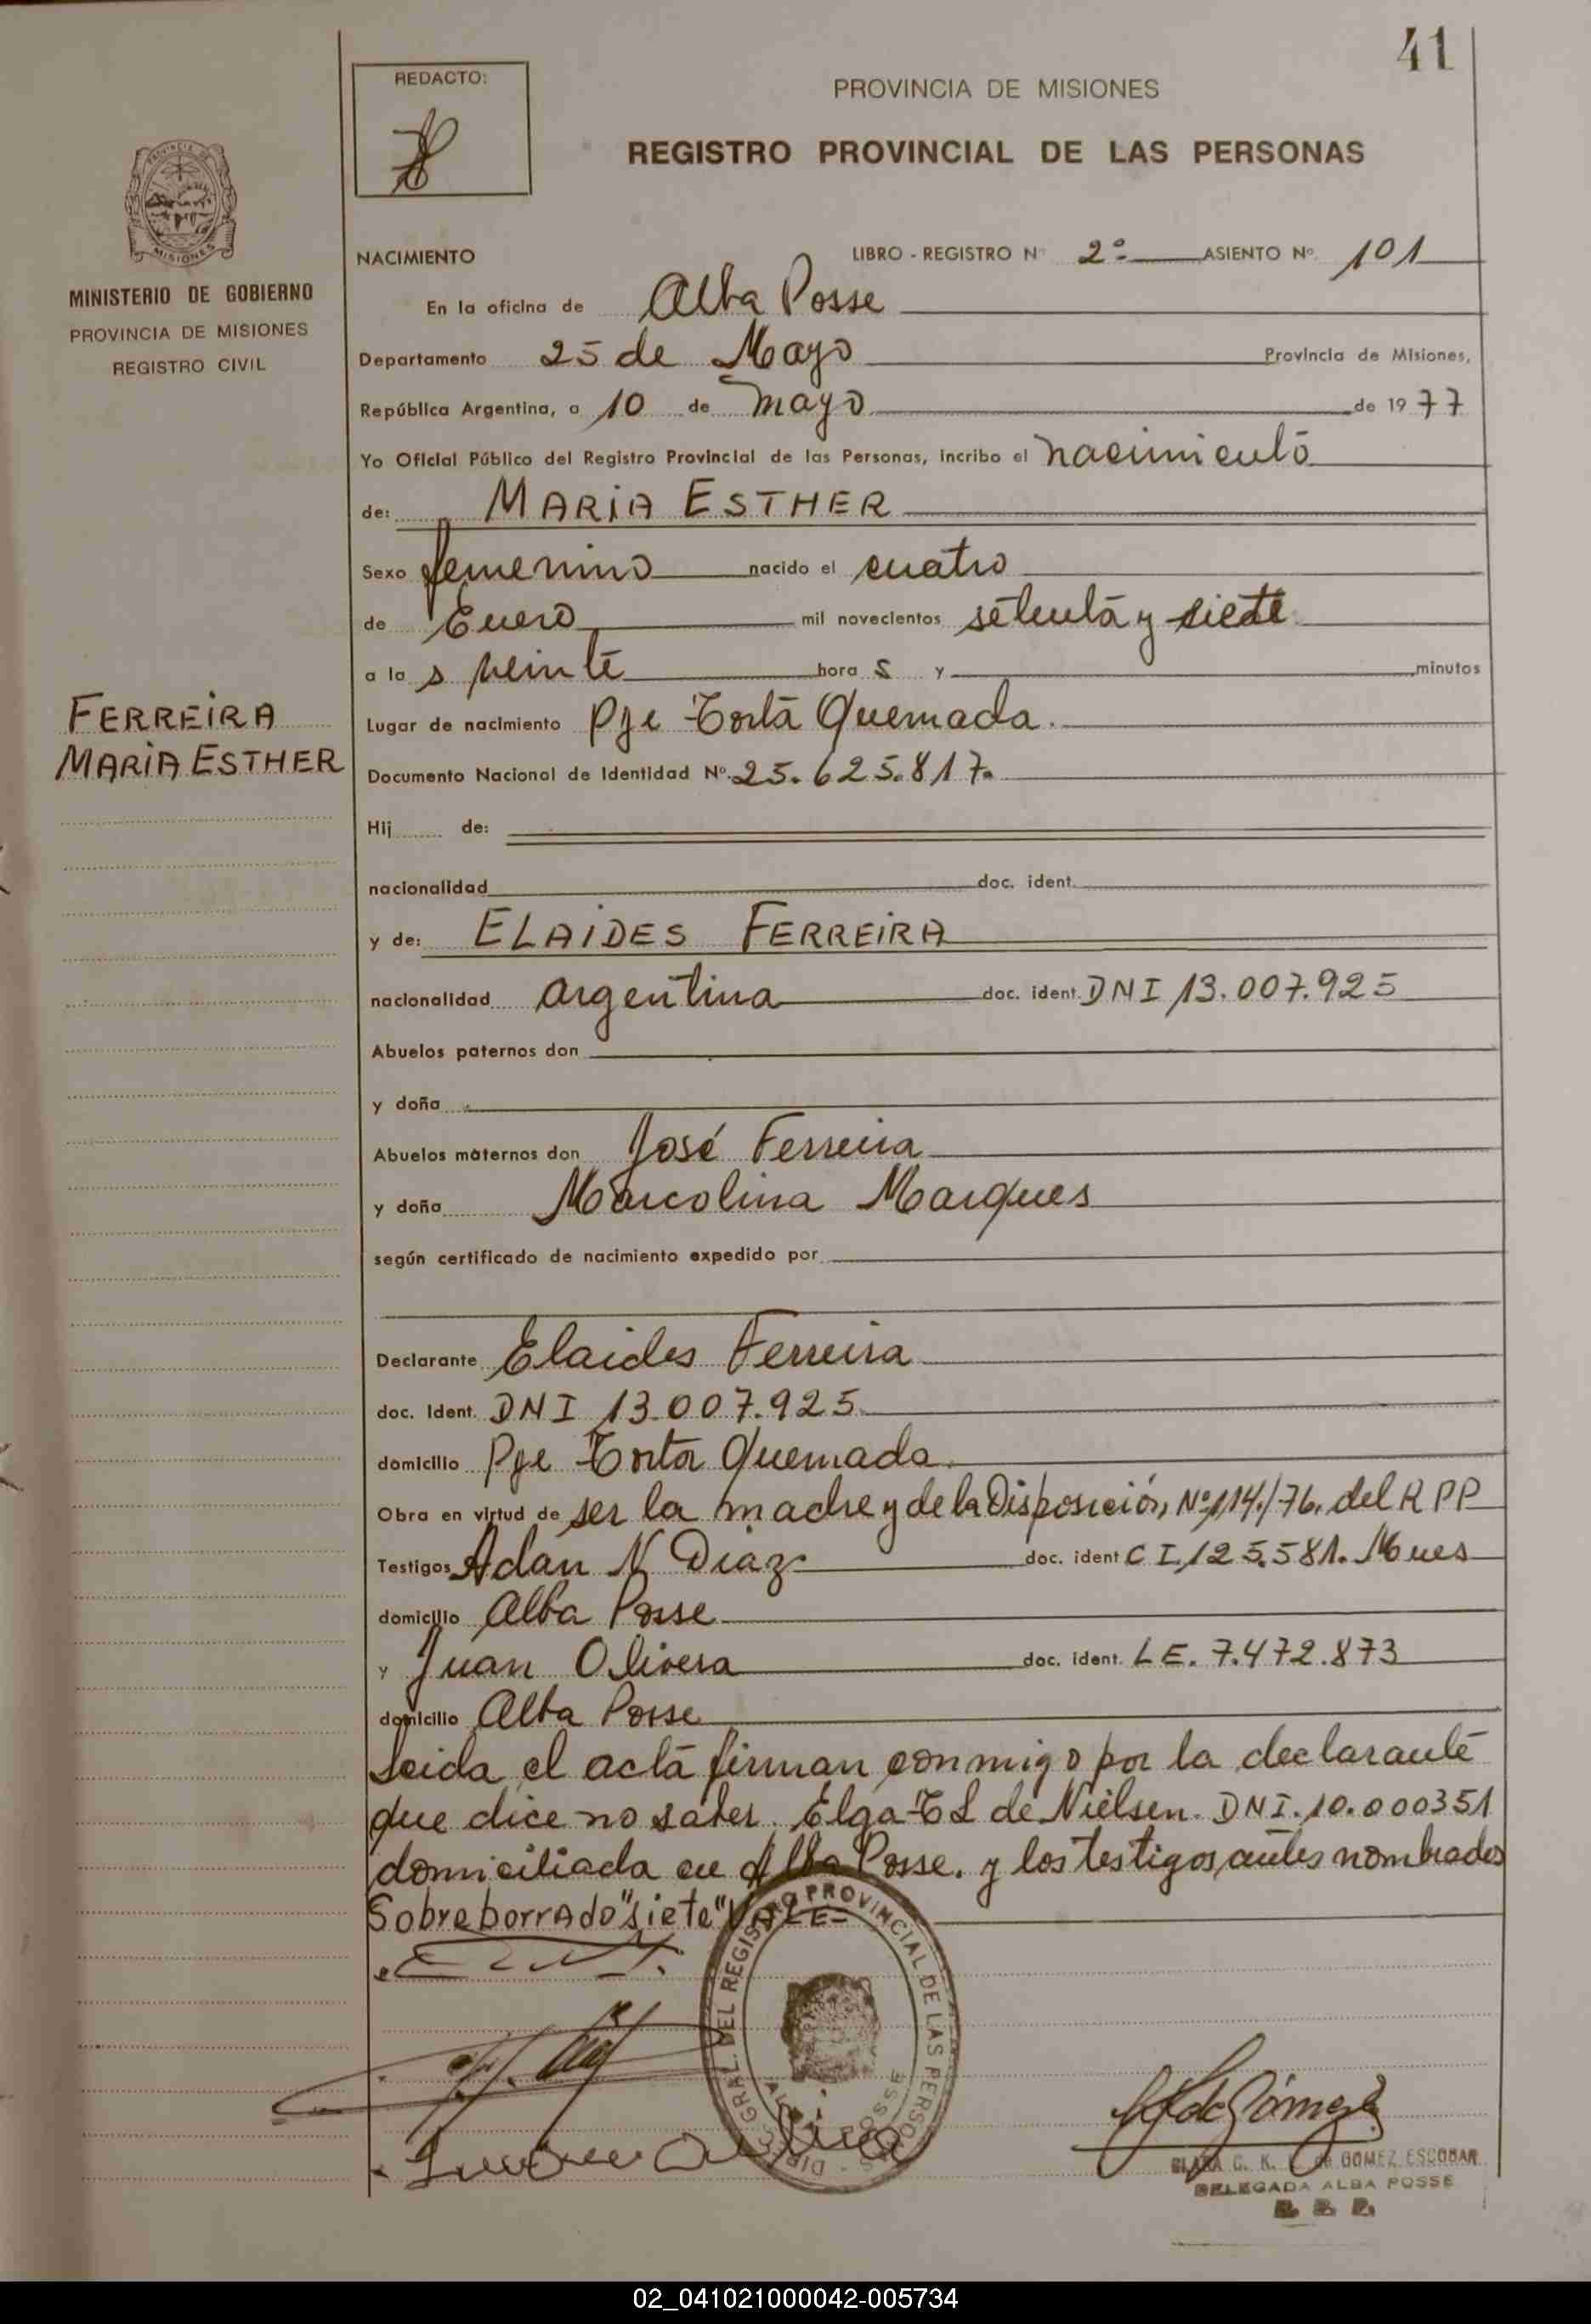 41
REDACTO:
PROVINCIA DE MISIONES
REGISTRO PROVINCIAL DE LAS PERSONAS
PROVINCIA DE
MISIONES
MINISTERIO DE GOBIERNO
PROVINCIA DE MISIONES
REGISTRO CIVIL
NACIMIENTO
LIBRO - REGISTRO Nº 2º ASIENTO Nº 101
En la oficina de Alba Posse
Departamento 25 de Mayo Provincia de Misiones,
República Argentina, a 10 de mayo de 1977
Yo Oficial Público del Registro Provincial de las Personas, incribo el nacimiento
de: MARIA ESTHER
Sexo femenino nacido el cuatro
de Enero mil novecientos setenta y siete
a la s veinte hora s y minutos
FERREIRA
MARIA ESTHER
Lugar de nacimiento Pje Torta Quemada.
Documento Nacional de Identidad Nº. 25.625.817.
Hij de:
nacionalidad doc. ident.
y de: ELAIDES FERREIRA
nacionalidad argentina doc. ident. DNI 13.007.925
Abuelos paternos don
y doña
Abuelos maternos don José Ferreira
y doña Marcolina Marques
según certificado de nacimiento expedido por
Declarante Elaides Ferreira
doc. Ident. DNI 13.007.925
domicilio Pje Torta Quemada.
Obra en virtud de ser la madre y de la Disposición, Nº 114/76. del R P P
Testigos Adan N Diaz doc. ident C I. 125.581. Mnes
domicilio Alba Posse
y Juan Olivera doc. ident. L E. 7.472.873
domicilio Alba Posse
Leida el acta firman conmigo por la declarante
que dice no saber. Elga T L de Nielsen. DNI. 10.000351
domiciliada en Alba Posse. y los testigos antes nombrados
Sobreborrado "siete" VALE-
DIREC. GRAL. DEL REGISTRO PROVINCIAL DE LAS PERSONAS
ALBA POSSE
de Gómez
CLARA C. K. de GOMEZ ESCOBAR
DELEGADA ALBA POSSE
02_041021000042-005734